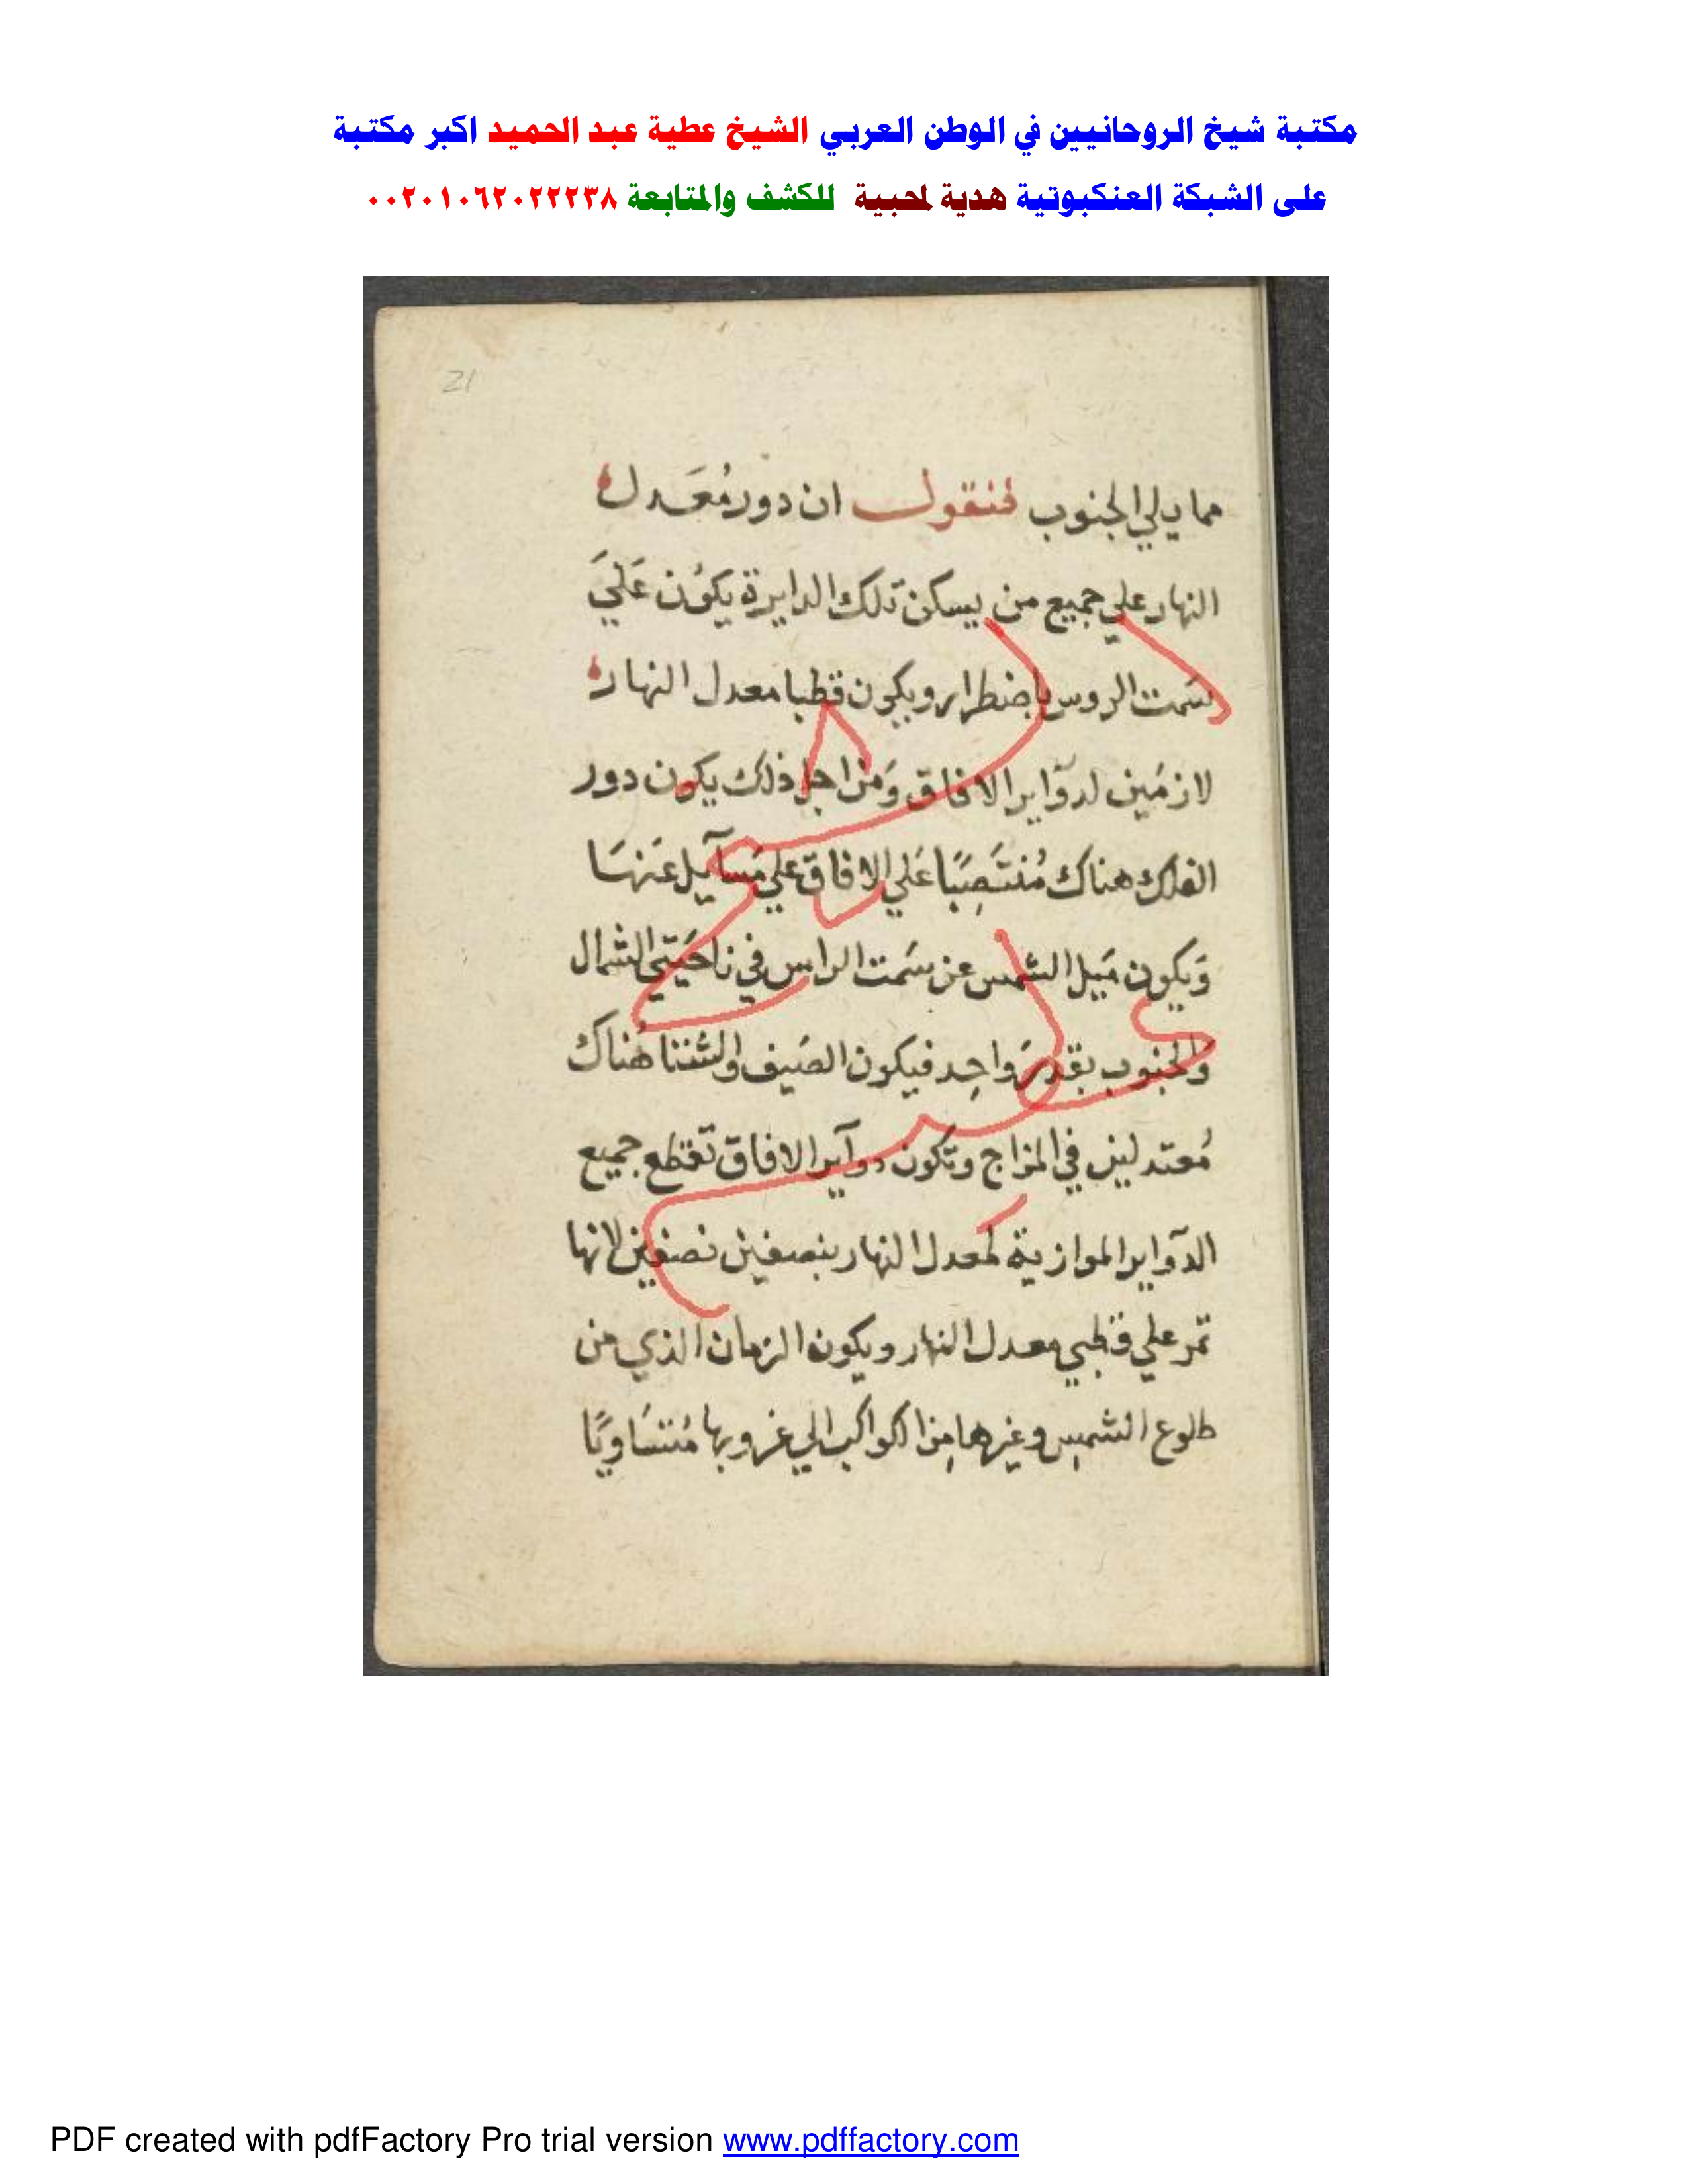 مكتبة شيخ الروحانيين في الوطن العربي الشيخ عطية عبد الحميد اكبر مكتبة
على الشبكة العنكبوتية هدية لمحبية للكشف والمتابعة ٠٠٢٠١٠٦٢٠٢٢٢٣٨
21
مما يلي الجنوب فنقول ان دور مُعَدل
النهار علي جميع من يسكن تلك الدايرة يكوُن عَليَ
سَمت الروس باضطرار ويكون قطبا معدل النهار
لازمَين لدوَآير الافاق وَمن اجل ذلك يكون دور
الفلك هناك مُنتَصِبًا عَلي الافاق علي مَسآيل عَنهَا
وَيكون مَيل الشمس عن سَمت الراس في ناحَيتي الشمال
وَالجنوب بقدرَ واحِد فيكون الصَيف والشتنا هُناك
مُعتدلين في المزاج وتكون دوآير الافاق تقطع جميع
الدوَآير الموازية لمعدل النهار بنصفين نصفين لانها
تمر علي قطبي معدل النهار ويكون الزمان الذي من
طلوع الشمسِ وغيرها مِن الكواكب الي غروبها مُتسَاويًا
PDF created with pdfFactory Pro trial version www.pdffactory.com